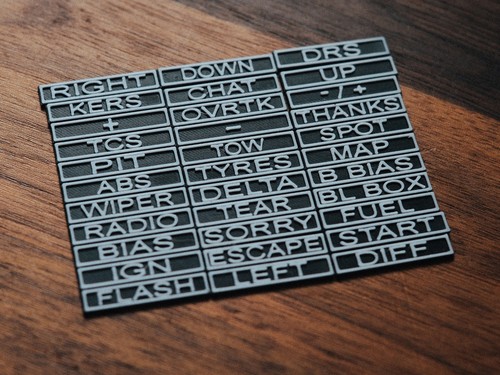 RIGHT DOWN DRS
KERS CHAT UP
+ OVRTK - / +
TCS - THANKS
PIT TOW SPOT
ABS TYRES MAP
WIPER DELTA B BIAS
RADIO TEAR BL BOX
BIAS SORRY FUEL
IGN ESCAPE START
FLASH LEFT DIFF